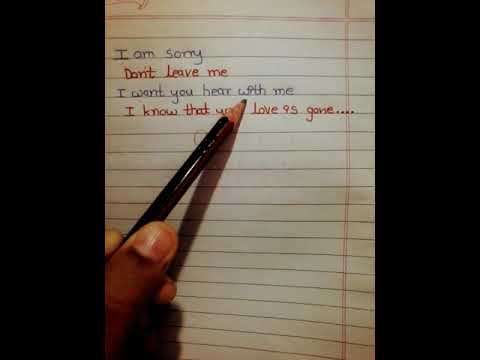 I am sorry
Don't leave me
I want you hear with me
I know that your love is gone....